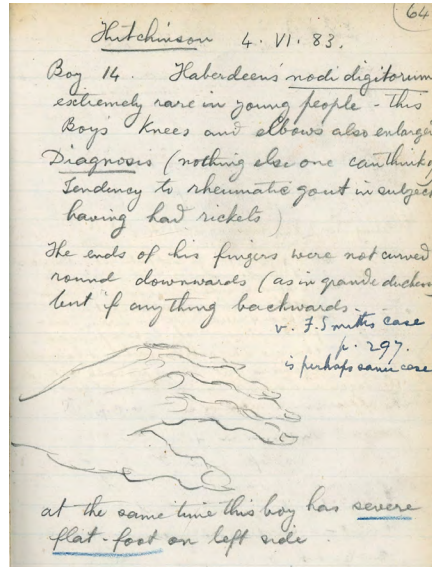 64
Hutchinson 4. VI. 83.
Boy 14. Haberdeen's nodi digitorum
extremely rare in young people - this
Boy's Knees and elbows also enlarged
Diagnosis (nothing else one can think of
Tendency to rheumatic gout in subject
having had rickets)
The ends of his fingers were not curved
round downwards (as in grande
but if anything backwards.
v. F. Smith's case
p. 297.
is perhaps same case
at the same time this boy has severe
flat-foot on left side.